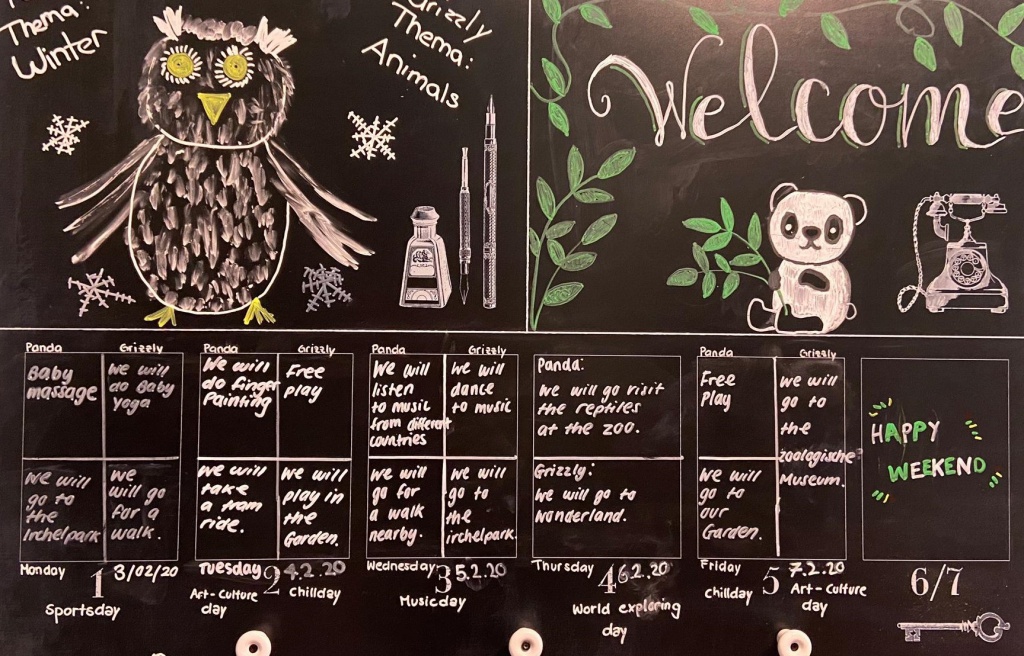 Thema:
Winter
Grizzly
Thema:
Animals
Welcome
Panda
Grizzly
Baby
massage
We will
do Baby
Yoga
We will
go to
the
Irchelpark
We
will go
for a
walk.
Monday
1
3/02/20
Sportsday
Panda
Grizzly
We will
do finger
Painting
Free
play
We will
take
a tram
ride.
We will
play in
the
Garden.
Tuesday
2
4.2.20
Art-Culture
day
Chillday
Panda
Grizzly
We will
listen
to music
from different
countries
We will
dance
to music
We will
go for
a walk
nearby.
We will
go to
the
irchelpark.
Wednesday
3
5.2.20
Musicday
Panda:
We will go visit
the reptiles
at the zoo.
Grizzly:
We will go to
Wonderland.
Thursday
4
6.2.20
World exploring
day
Panda
Grizzly
Free
Play
We will
go to
the
zoologische
Museum.
We will
go to
our
Garden.
Friday
5
7.2.20
chillday
Art-Culture
day
HAPPY
WEEKEND
6/7